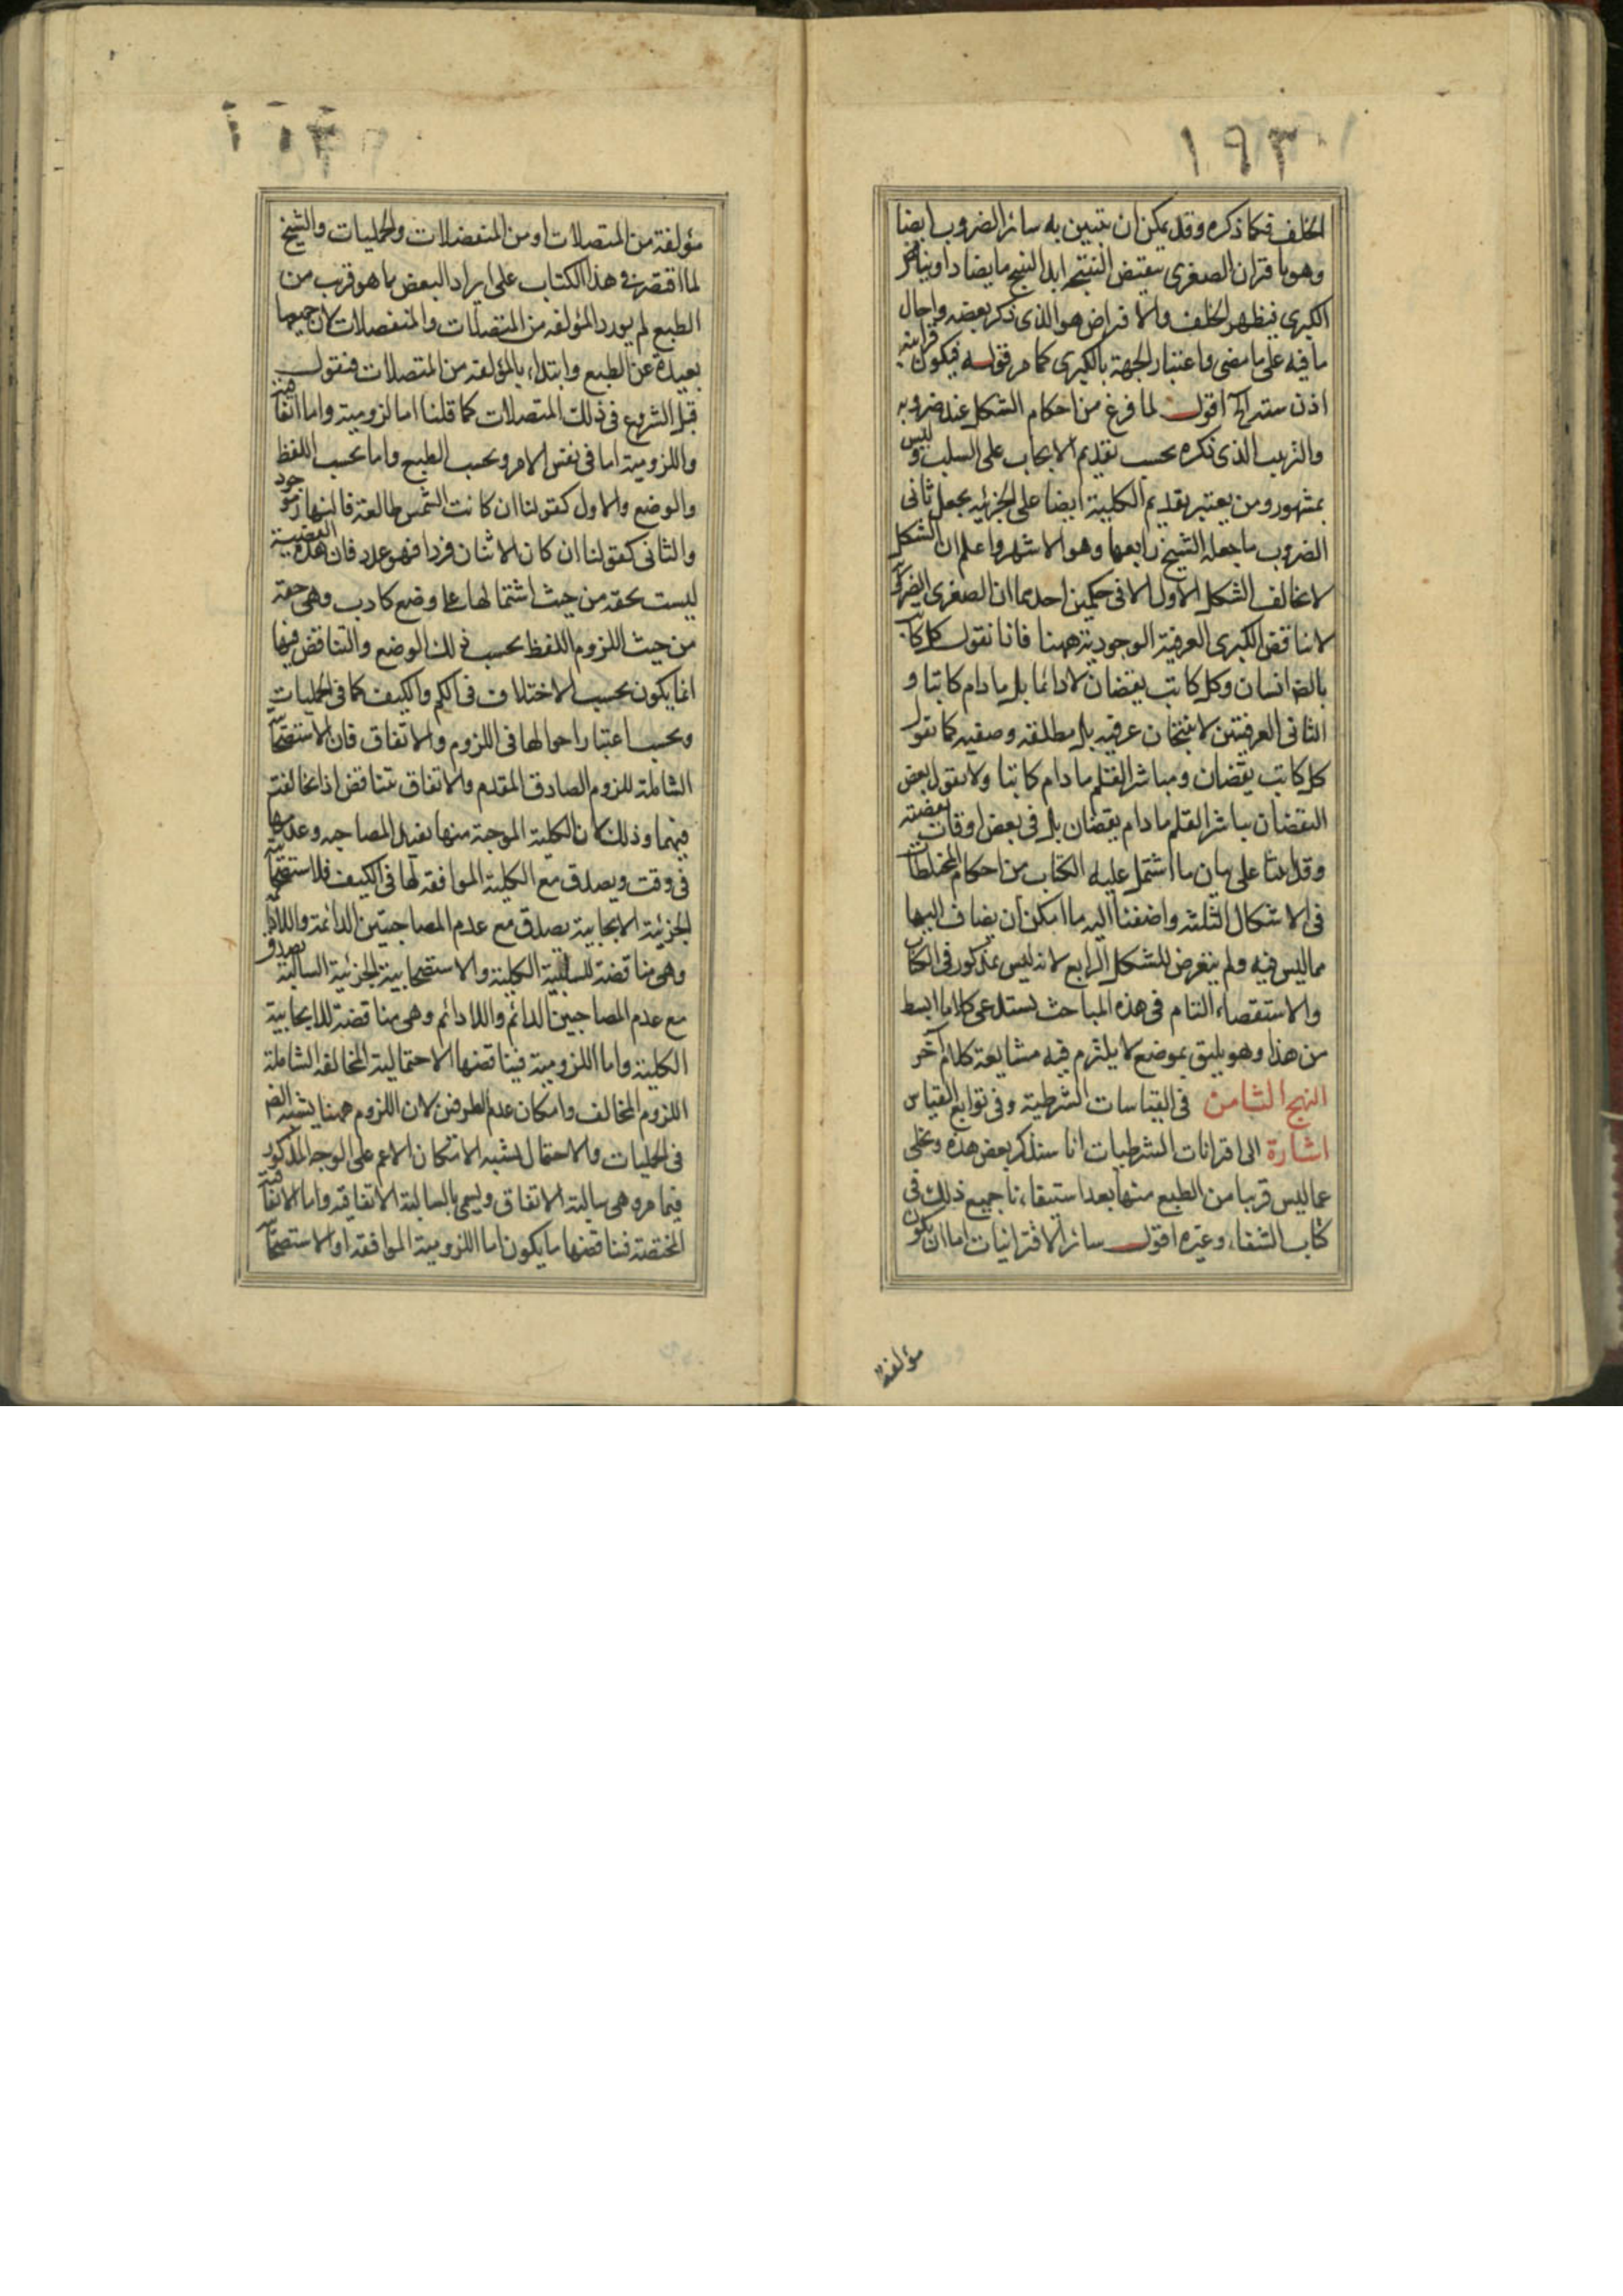 ١٩٣
الخلف فكما ذكره وقد يمكن ان يتبين به سائر الضروب ايضا
وهو باقتران الصغرى بنقيض النتيجة ابدا لينتج ما يضاد او يناقض
الكبرى فيظهر الخلف والافتراض هو الذى ذكر بعضه واحال
ما فيه على ما مضى واعتبار الجهة بالكبرى كما مر قوله فيكون قرائنه
اذن ستة اقول لما فرغ من احكام الشكل عند ضروبه
والترتيب الذى ذكره بحسب تقديم الايجاب على السلب وليس
بمشهور ومن يعتبر تقديم الكلية ايضا على الجزئية يجعل ثانى
الضروب ما جعله الشيخ رابعها وهو الاشهر واعلم ان الشكل
لا يخالف الشكل الاول الا فى حكمين احدهما ان الصغرى الضرورية
لا تناقض الكبرى العرفية الوجودية ههنا فانا نقول كل كاتب
بالضر انسان وكل كاتب يقضان لا دائما بل ما دام كاتبا و
الثانى العرفيتين لا ينتجان عرفيه بل مطلقه وصفيه كما نقول
كل كاتب يقضان ومباشر القلم ما دام كاتبا ولا نقول بعض
اليقضان مباشر القلم ما دام يقضان بل فى بعض اوقات يقضته
وقد بينا على بيان ما اشتمل عليه الكتاب من احكام المختلطات
فى الاشكال الثلثه واضفنا اليه ما امكن ان يضاف اليها
مما ليس فيه ولم يتعرض للشكل الرابع لانه ليس بمذكور فى الكتاب
والاستقصاء التام فى هذه المباحث يستدعى كلاما ابسط
من هذا وهو يليق بموضع لا يلتزم فيه مشايعة كلام آخر
النهج الثامن فى القياسات الشرطية وفى توابع القياس
اشارة الى اقترانات الشرطيات انا سنذكر بعض هذه ونخلى
عما ليس قريبا من الطبع منها بعد استيفاءنا جميع ذلك فى
كتاب الشفاء وغيره اقول سائر الاقترانيات اما ان يكون
مؤلفة
مؤلفة من المتصلات او من المنفصلات والحمليات والشيخ
لما اقتصر فى هذا الكتاب على ايراد البعض ما هو قريب من
الطبع لم يورد المؤلفة من المتصلات والمنفصلات لان جميعها
بعيدة عن الطبع وابتداء بالمؤلفة من المتصلات فنقول
قبل الشروع فى ذلك المتصلات كما قلنا اما لزومية واما اتفاقية
واللزومية اما فى نفس الامر وبحسب الطبع واما بحسب اللفظ
والوضع والاول كقولنا ان كانت الشمس طالعة فالنهار موجود
والثانى كقولنا ان كان الاثنان فردا فهو عدد فان هذه القضية
ليست بحقه من حيث اشتمالها على وضع كاذب وهى حقه
من حيث اللزوم اللفظ بحسب ذلك الوضع والتناقض فيها
انما يكون بحسب الاختلاف فى الكم والكيف كما فى الحمليات
وبحسب اعتبار احوالها فى اللزوم والاتفاق فان الاستصحابية
الشاملة للزوم الصادق المقدم والاتفاق تتناقض اذا تخالفتا
فيهما وذلك لان الكلية الموجبة منها يفيد المصاحبه وعدمها
فى وقت ويصدق مع الكلية الموافقه لها فى الكيف فلاستصحابية
الجزئية الايجابية يصدق مع عدم المصاحبتين الدائمة واللادائمة
وهى مناقضة للسالبية الكلية والاستصحابية الجزئية السالبة يصدق
مع عدم المصاحبين الدائم واللادائم وهى مناقضة للايجابية
الكلية واما اللزومية فيناقضها الاحتمالية المخالفه الشاملة
اللزوم المخالف وامكان عدم الطرفين لان اللزوم ههنا يشبه الضر
فى الحمليات والاحتمال يشبه الامكان الاعم على الوجه المذكور
فيما مر وهى سالبة الاتفاقى ويسمى بالسالبة الاتفاقيه واما الاتفاقية
المختصة فيناقضها ما يكون اما اللزومية الموافقه او الاستصحابية